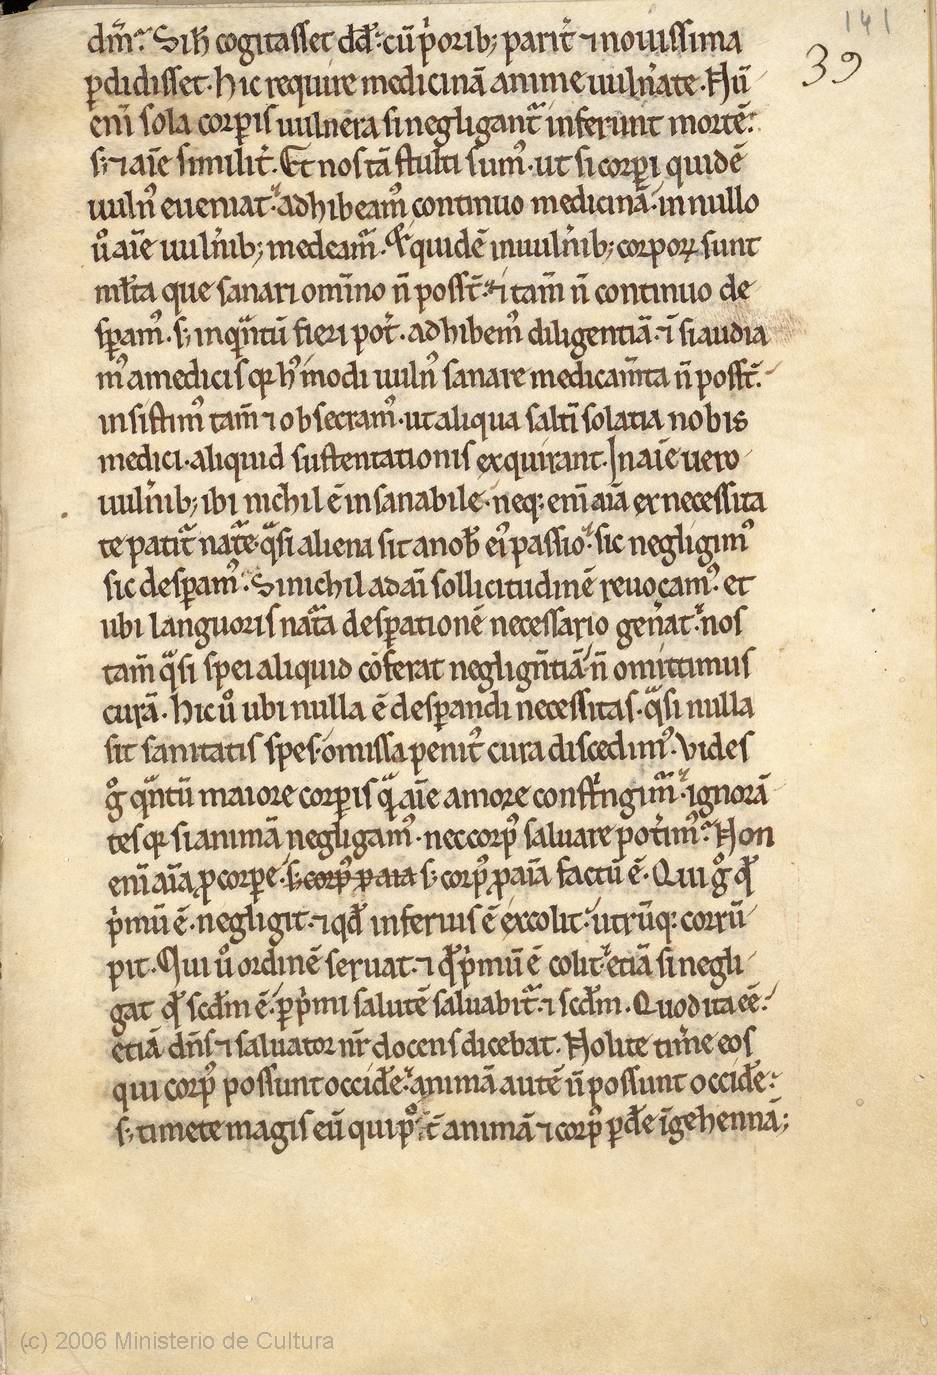 141
39
dm̄. Si h̄ cogitasset dd̄. cū p̓orib; parit̓ ⁊ nouissima
ꝑdidisset. hic require medicinā anime uuln̓ate. Nū
enī sola corꝑis uulnera si negligant̄ inferunt mortē.
s; ⁊ aīe similit̓. Et nos tā stulti sumꝰ. ut si corꝑi quidē
uulnꝰ eueniat. adhibeamꝰ continuo medicinā. in nullo
u̓o aīe uuln̓ib; medeam̄. Et quidē in uuln̓ib; corporꝝ sunt
ml̄ta que sanari om̄ino n̄ posst̄. ⁊ tam̄ n̄ continuo de
sꝑamꝰ. s; inqͣntū fieri pot̓. adhibemꝰ diligentiā. ⁊ si audia
mꝰ a medicis qꝛ hꝰmodi uulnꝰ sanare medicam̄ta n̄ posst̄.
insistimꝰ tam̄ ⁊ obsecramꝰ. ut aliqua saltī solatia nobis
medici. aliquid sustentationis exquirant. In aīe uero
uuln̓ib; ibi nichil ē insanabile. neq; enī aīa ex necessita
te patit̄ nat̄e. qͣsi aliena sit a nob̄ eiꝰ passio. sic negligimꝰ
sic desꝑamꝰ. Si nichil ad aī sollicitudinē reuocamꝰ. et
ubi languoris nat̄a desꝑationē necessario gen̓at. nos
tam̄ qͣsi spei aliquid cōferat neglign̄tiā. n̄ omittimus
curā. hic u̓o ubi nulla ē desꝑandi necessitas. qͣsi nulla
sit sanitatis spes. omissa penitꝰ cura discedimꝰ. Vides
gͦ qͣntū maiore corꝑis qͣ aīe amore constn̓gim̄. ignorā
tes qꝛ si animā negligamꝰ. nec corpꝰ saluare pot̓imꝰ. Non
enī aīa ꝓ corꝑe. s; corpꝰ ꝓ aīa s; corpꝰ ꝓ aīa factū ē. Qui gͦ qd̄
p̓mū ē. negligit. ⁊ qd̄ inferius ē excolit. utrūq; corrū
pit. Qui u̓o ordinē seruat. ⁊ qd̄ p̓mū ē colit. etiā si negli
gat qd̄ scd̄m ē. ꝑ p̓mi salutē saluabit̄. ⁊ scd̄m. Quod ita eē.
etiā dn̄s ⁊ saluator nr̄ docens dicebat. Nolite tim̓e eos
qui corpꝰ possunt occid̄e. animā autē n̄ possunt occid̄e.
s; timete magis eū qui p t̄ animā ⁊ corpꝰ ꝑd̄e ī gehennā;
(c) 2006 Ministerio de Cultura